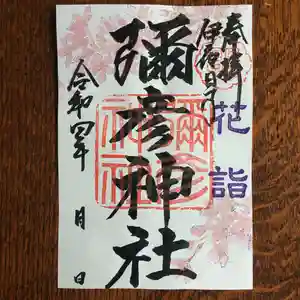 奉拝
伊夜日子
花詣
彌彦神社
彌彦神社
令和四年 月 日